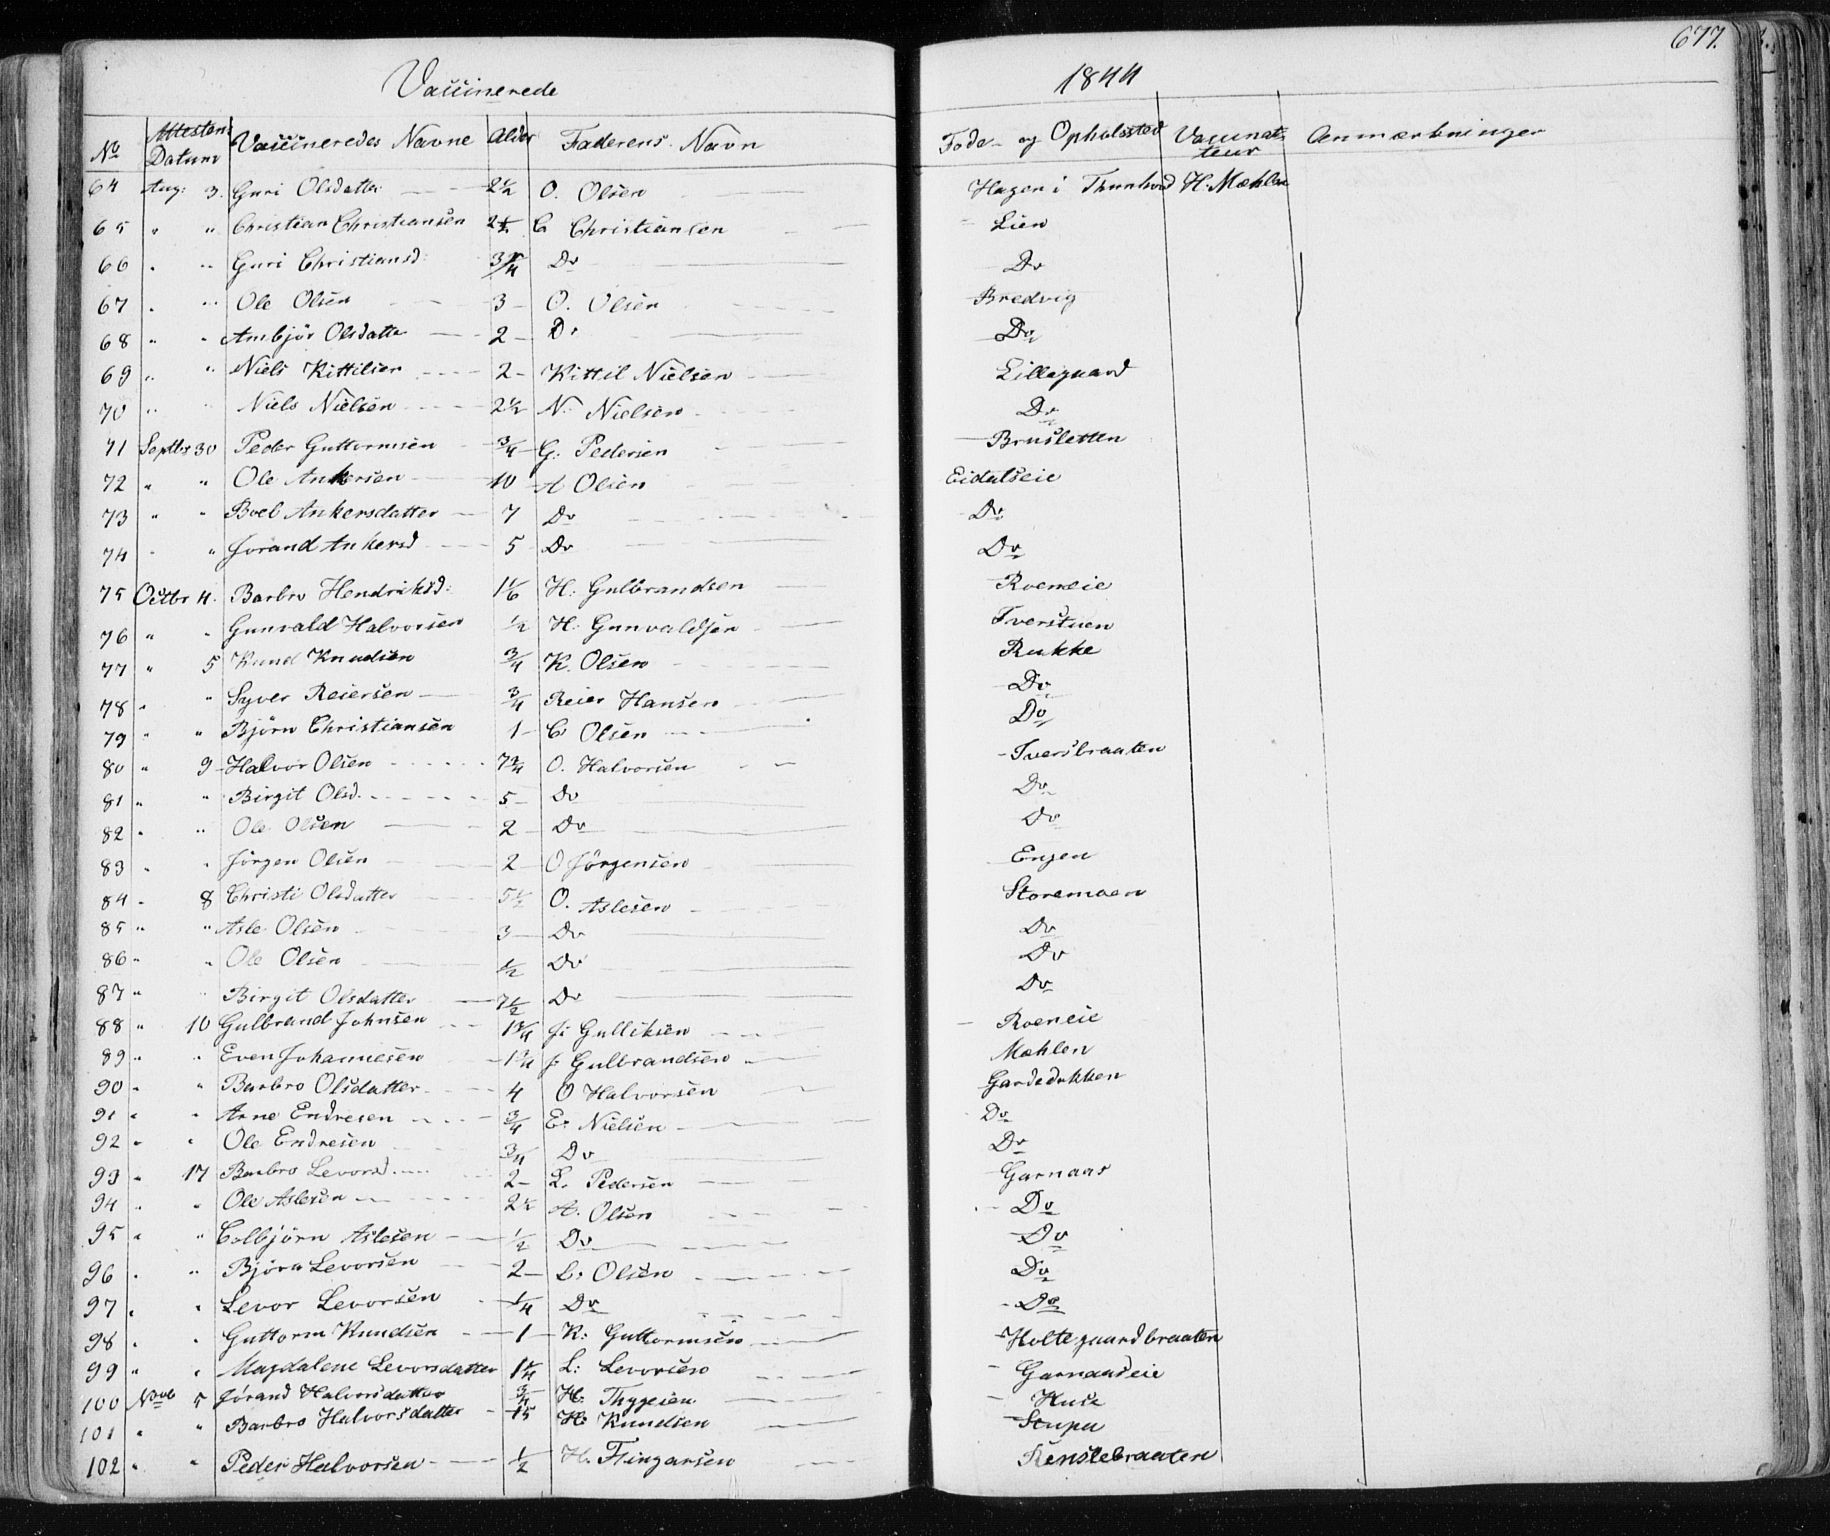 677.
Vaccinerede 1844
No Attestens Datum Vaccineredes Navne Alder Faderens Navn Føde- og Opholssted Vaccinatteur Anmærkninger
64 Aug: 3. Guri Olsdatter 2½ O. Olsen Hagen i Thunhovd H. Mæhlen
65 " " Christian Christiansen 2½ C Christiansen Lien
66 " " Guri Christiansd: Do Do
67 " " Ole Olsen 3 O. Olsen Bredvig
68 " " Ambjør Olsdatte 2 Do Do
69 " " Niels Kittilsen 2 Kittil Nielsen Lillegaard
70 " " Niels Nielsen 2½ N. Nielsen Do
71 Septbr 30 Peder Guttormsen ¾ G. Pedersen Brusletten
72 " " Ole Ankersen 10 A Olsen Eidalseie
73 " " Boel Ankersdatter 7 Do Do
74 " " Jorand Ankersd 5 Do Do
75 Octbr 4. Barbro Hendriksd: 1⅙ H. Gulbrandsen Roeneie
76 " " Gunvald Halvorsen ½ H. Gunvaldsen Tverstuen
77 " 5 Knud Knudsen ¾ K. Olsen Rukke
78 " " Syver Reiersen ¾ Reier Hansen Do
79 " " Bjørn Christiansen 1 C Olsen Do
80 " 9 Halvor Olsen 7¾ O. Halvorsen Tversbraaten
81 " " Birgit Olsd. 5 Do Do
82 " " Ole Olsen 2 Do Do
83 " " Jörgen Olsen 2 O Jörgensen Engen
84 " 8 Christi Olsdatter 5½ O. Aslesen Storemoen
85 " " Asle Olsen 3 Do Do
86 " " Ole Olsen ½ Do Do
87 " " Birgit Olsdatter 7½ Do Do
88 " 10 Gulbrand Johnsen 1¾ J: Gulliksen Roeneie
89 " " Even Johannesen 1¾ J. Gulbrandsen Mæhlen
90 " " Barbro Olsdatter 4 O Halvorsen Gardedokken
91 " " Arne Endresen ¾ E. Nielsen Do
92 " " Ole Endresen ¾ Do Do
93 " 17 Barbro Levorsd. 2 L. Pedersen Garnaas
94 " " Ole Aslesen 2½ A. Olsen Do
95 " " Colbjørn Aslesen ½ Do Do
96 " " Bjørn Levorsen 2 L. Olsen Do
97 " " Levor Levorsen ¼ Do Do
98 " " Guttorm Knudsen 1 K: Guttormsen Holtegaardbraaten
99 " " Magdalene Levorsdatter 1¼ L: Levorsen Garnaaseie
100 Novb 5 Jørand Halvorsdatter ¾ H. Thygesen Huse
101 " " Barbro Halvorsdatter 15 H. Knudsen Stupa
102 " " Peder Halvorsen ½ H. Fingarsen